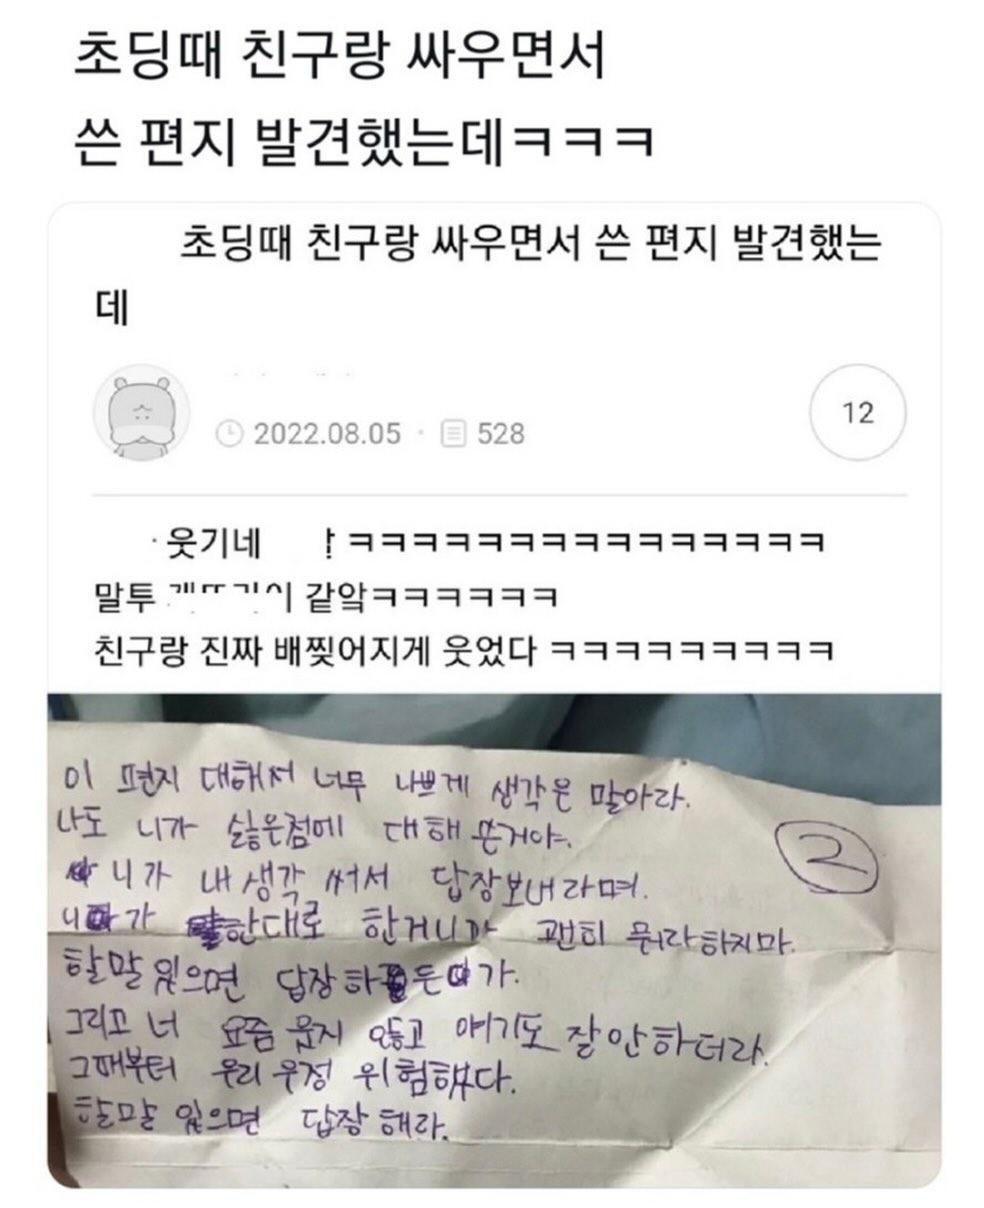 초딩때 친구랑 싸우면서
쓴 편지 발견했는데ㅋㅋㅋ
초딩때 친구랑 싸우면서 쓴 편지 발견했는
데
2022.08.05 · 528
12
웃기네 ㅋㅋㅋㅋㅋㅋㅋㅋㅋㅋㅋㅋㅋㅋㅋ
말투 같앜ㅋㅋㅋㅋㅋㅋ
친구랑 진짜 배찢어지게 웃었다 ㅋㅋㅋㅋㅋㅋㅋㅋㅋ
이 편지 대해서 너무 나쁘게 생각은 말아라.
나도 니가 싫은점에 대해 쓴거야.
니가 내 생각 써서 답장보내라며.
니가 한대로 한거니까 괜히 뭐라하지마.
할말 있으면 답장하든가.
그리고 너 요즘 웃지 않고 얘기도 잘 안하더라.
그때부터 우리 우정 위험했다.
할말 있으면 답장 해라.
2